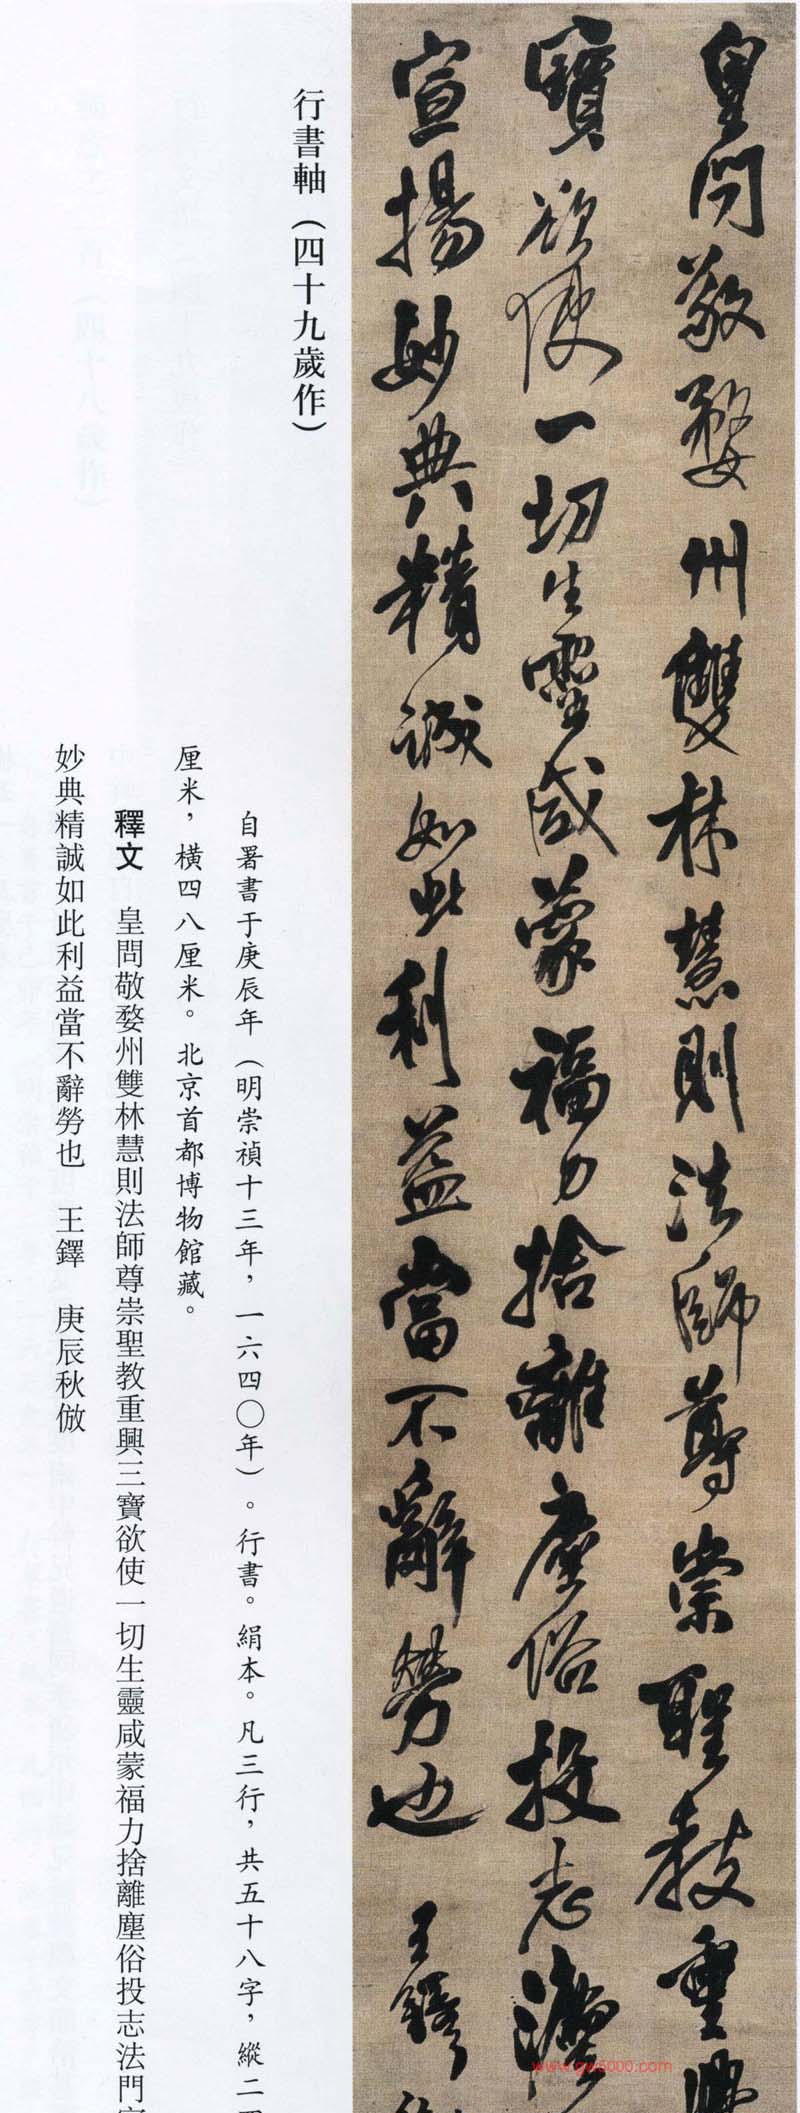 皇問敬婺州雙林慧則法師尊崇聖教重興
寶欲使一切生靈咸蒙福力捨離塵俗投志灋
宣揚妙典精誠如此利益當不辭勞也 王鐸
行書軸（四十九歲作）
自署書于庚辰年（明崇禎十三年，一六四〇年）。行書。絹本。凡三行，共五十八字，縱二
厘米，橫四八厘米。北京首都博物館藏。
釋文 皇問敬婺州雙林慧則法師尊崇聖教重興三寶欲使一切生靈咸蒙福力捨離塵俗投志法門
妙典精誠如此利益當不辭勞也 王鐸 庚辰秋倣
www.gw5000.com